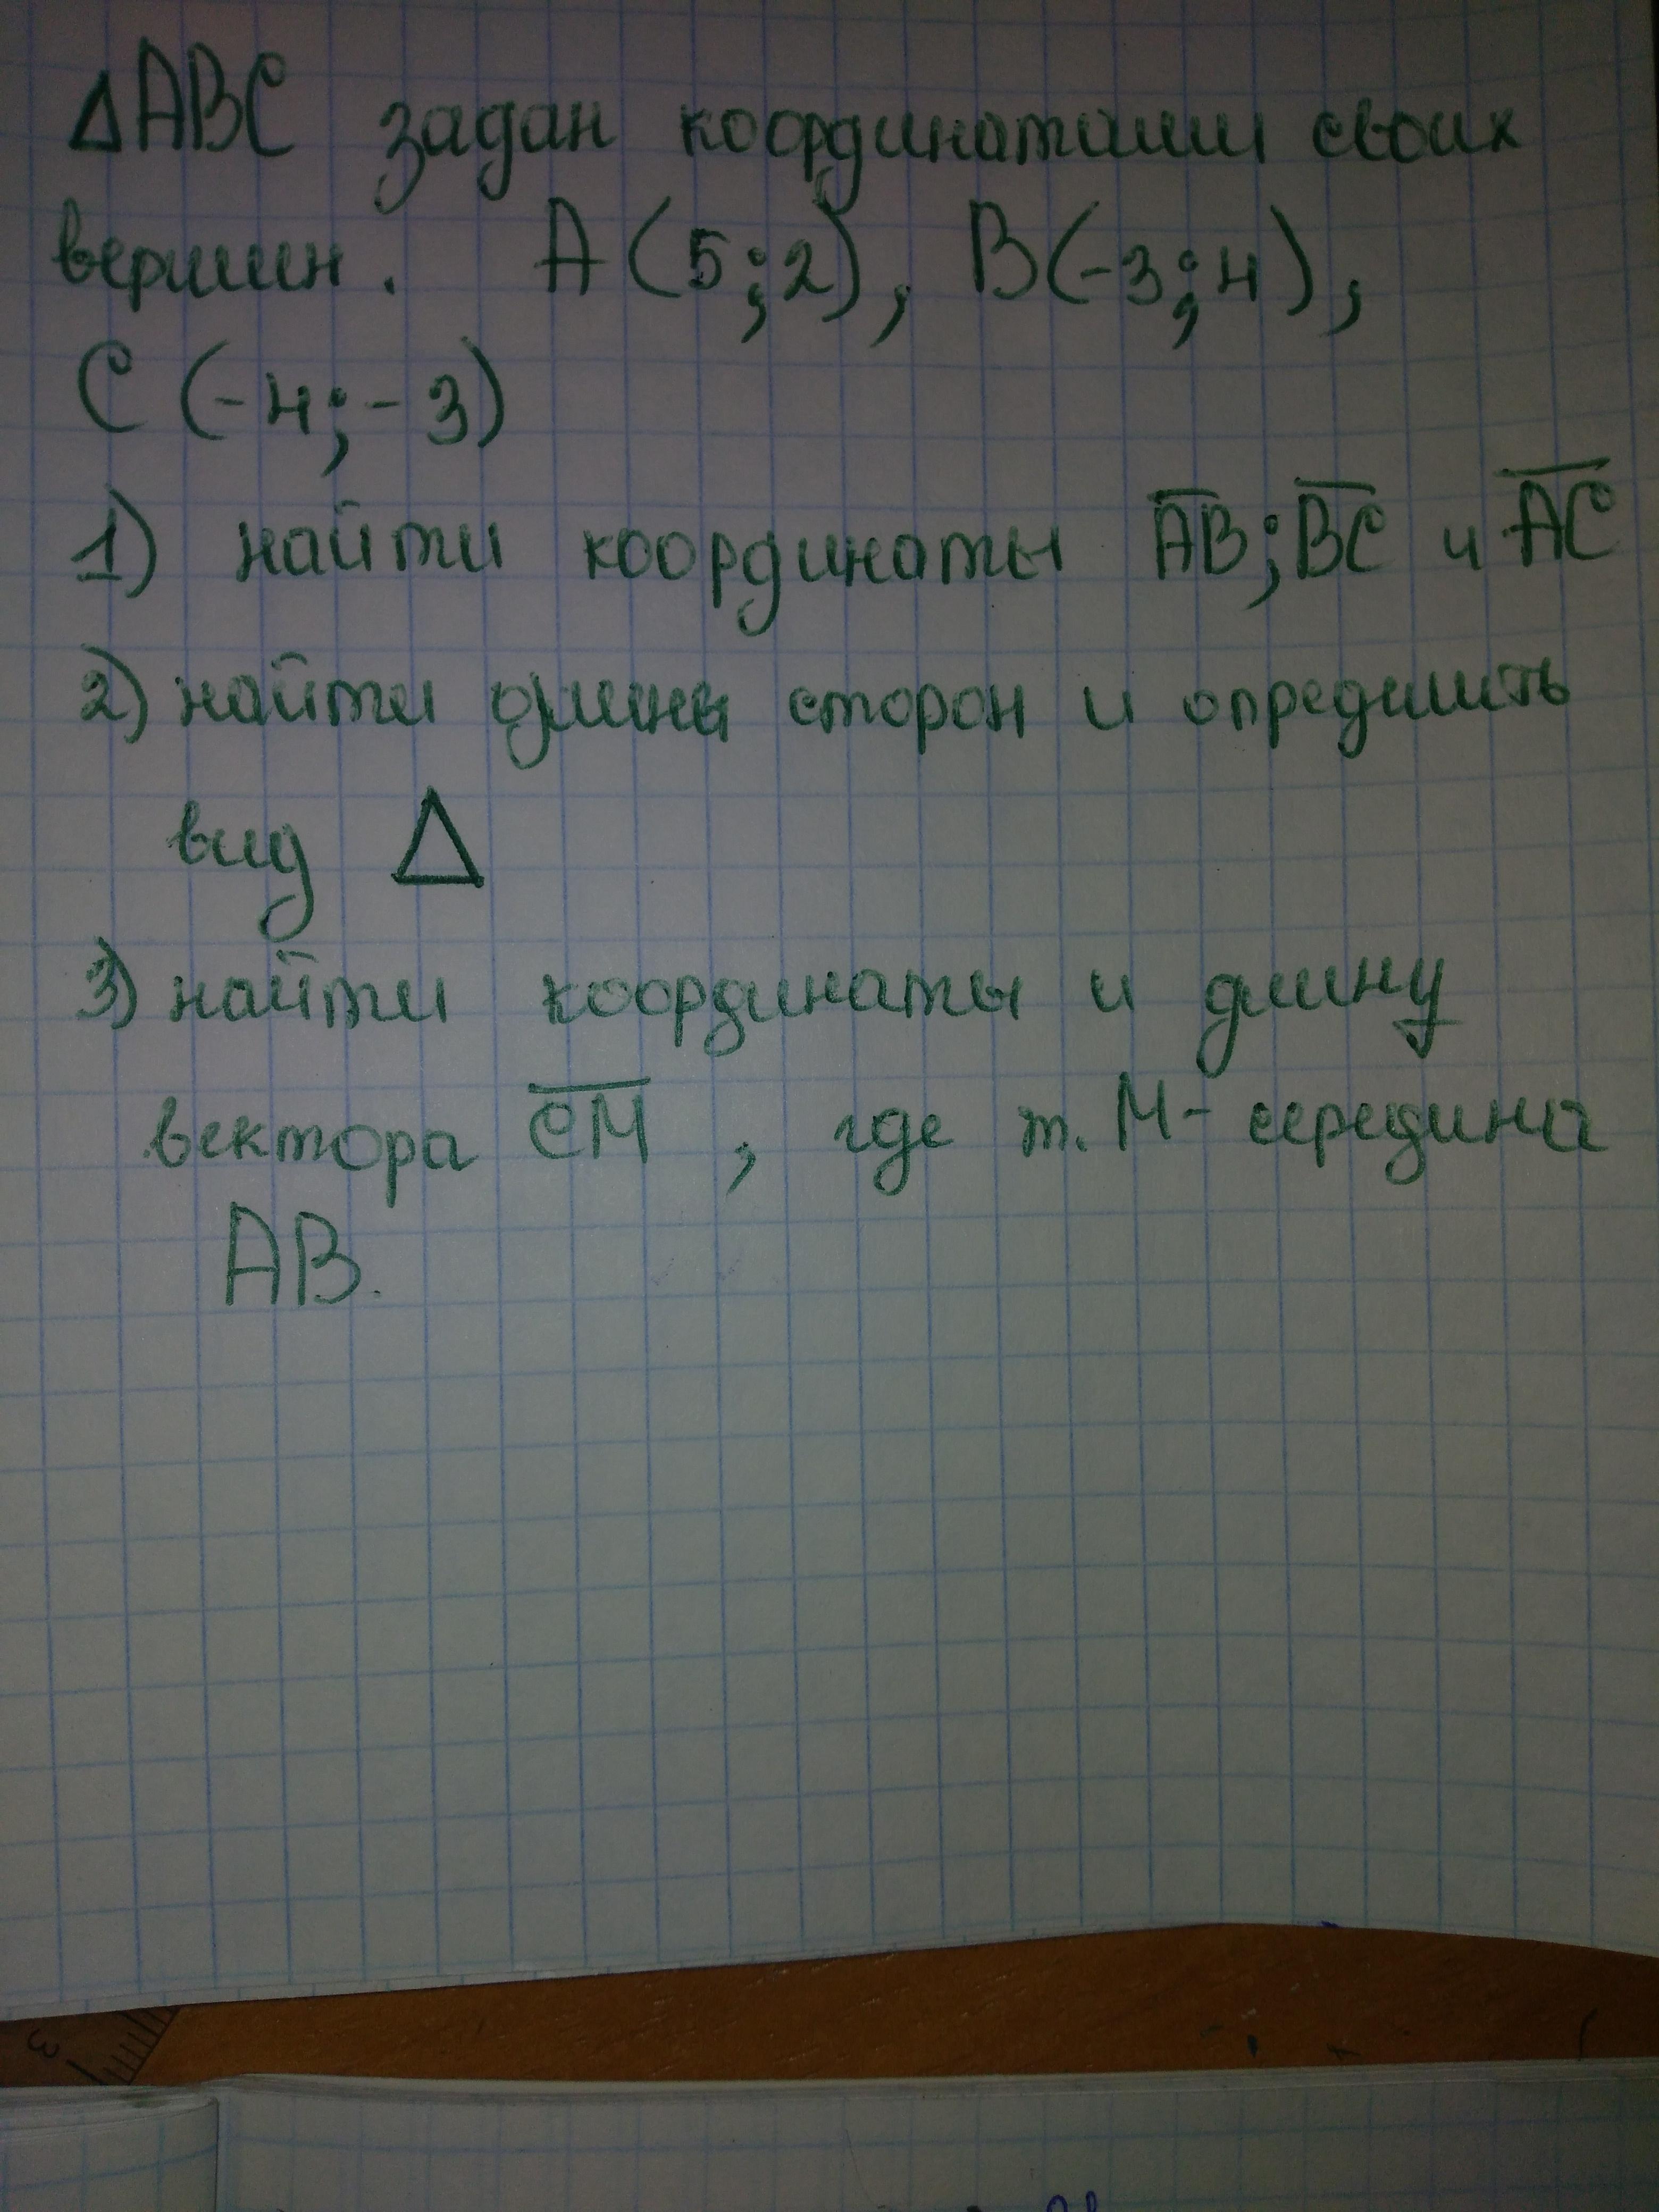 ΔABC задан координатами своих
вершин. A(5;2), B(-3;4),
C(-4;-3)
1) найти координаты A̅B̅; B̅C̅ и A̅C̅
2) найти длины сторон и определить
вид Δ
3) найти координаты и длину
вектора C̅M̅, где т. M- середина
AB.
3